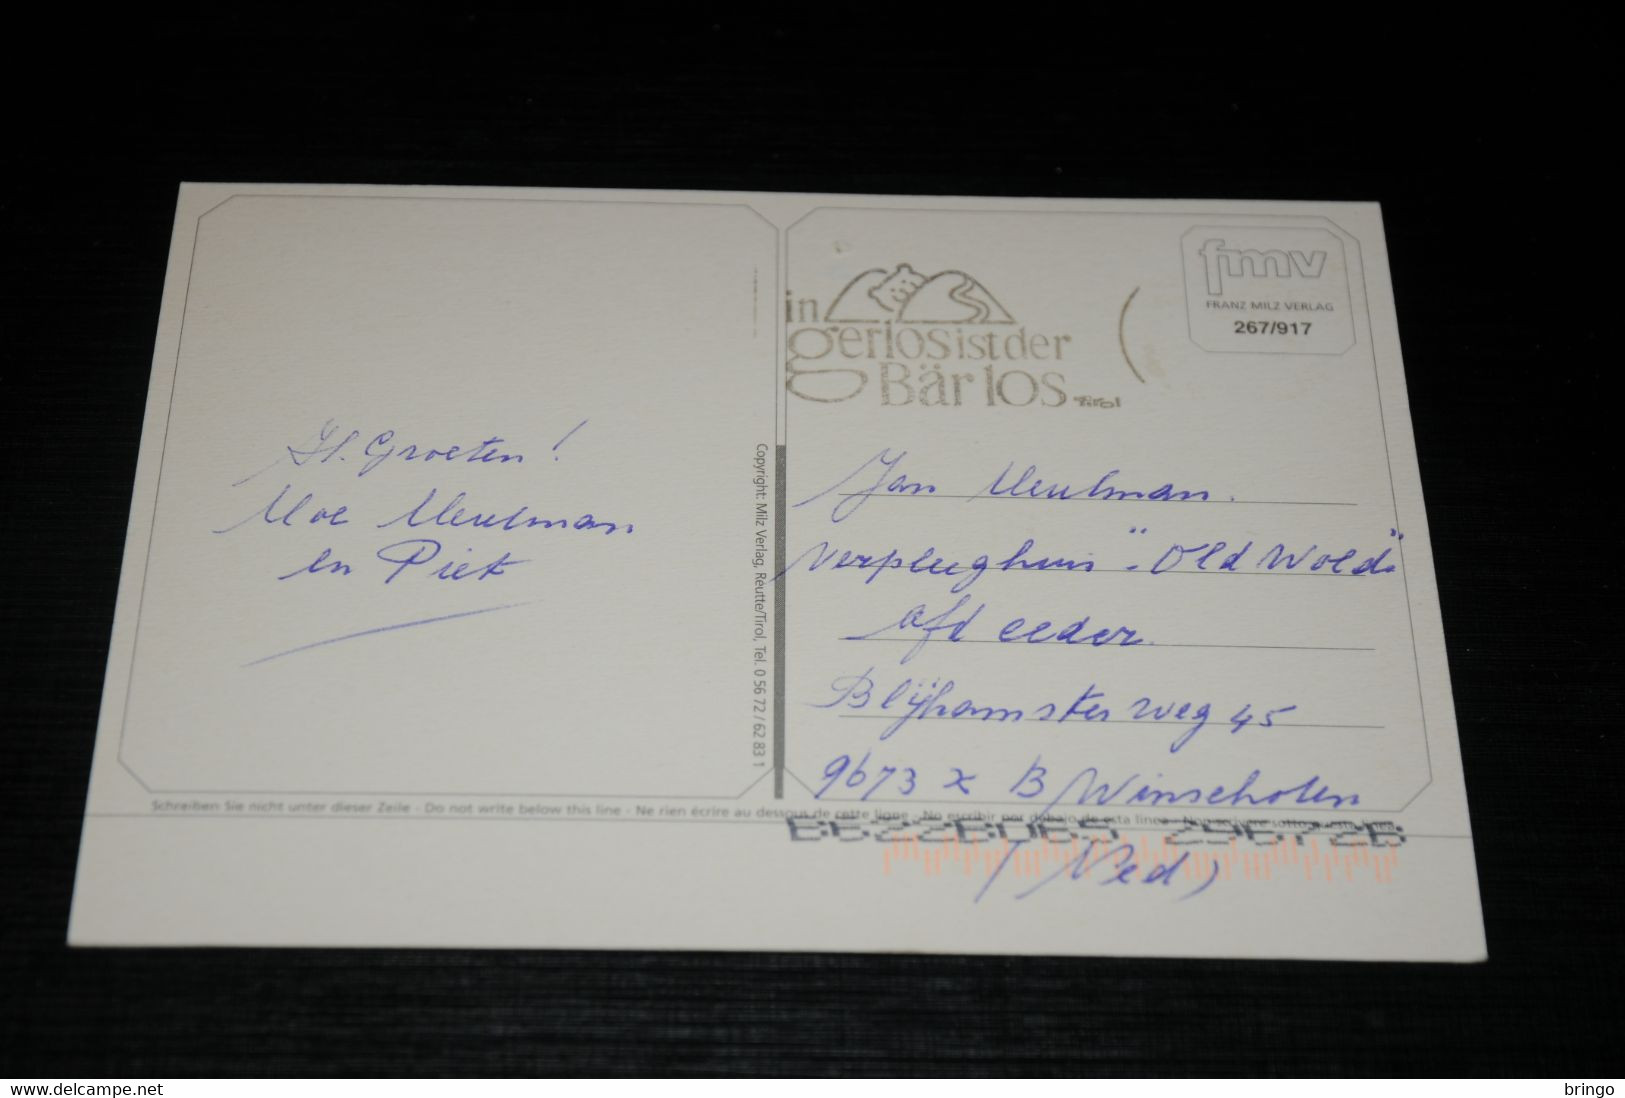 fmv
FRANZ MILZ VERLAG
267/917
in
gerlos ist der
Bär los
Tirol
Groeten!
Moe Meulman
en Piet
Copyright: Milz Verlag, Reutte/Tirol, Tel. 0 56 72 / 62 83 1
Jan Meulman.
Verpleeghuis "Old Wold"
afd ceder.
Blijhamsterweg 45
9673 X B Winschoten
Schreiben Sie nicht unter dieser Zeile - Do not write below this line - Ne rien écrire au dessous de cette ligne - No escribir por debajo de esta linea - Non scrivere sotto questa linea
(Ned)
delcampe.net
bringo